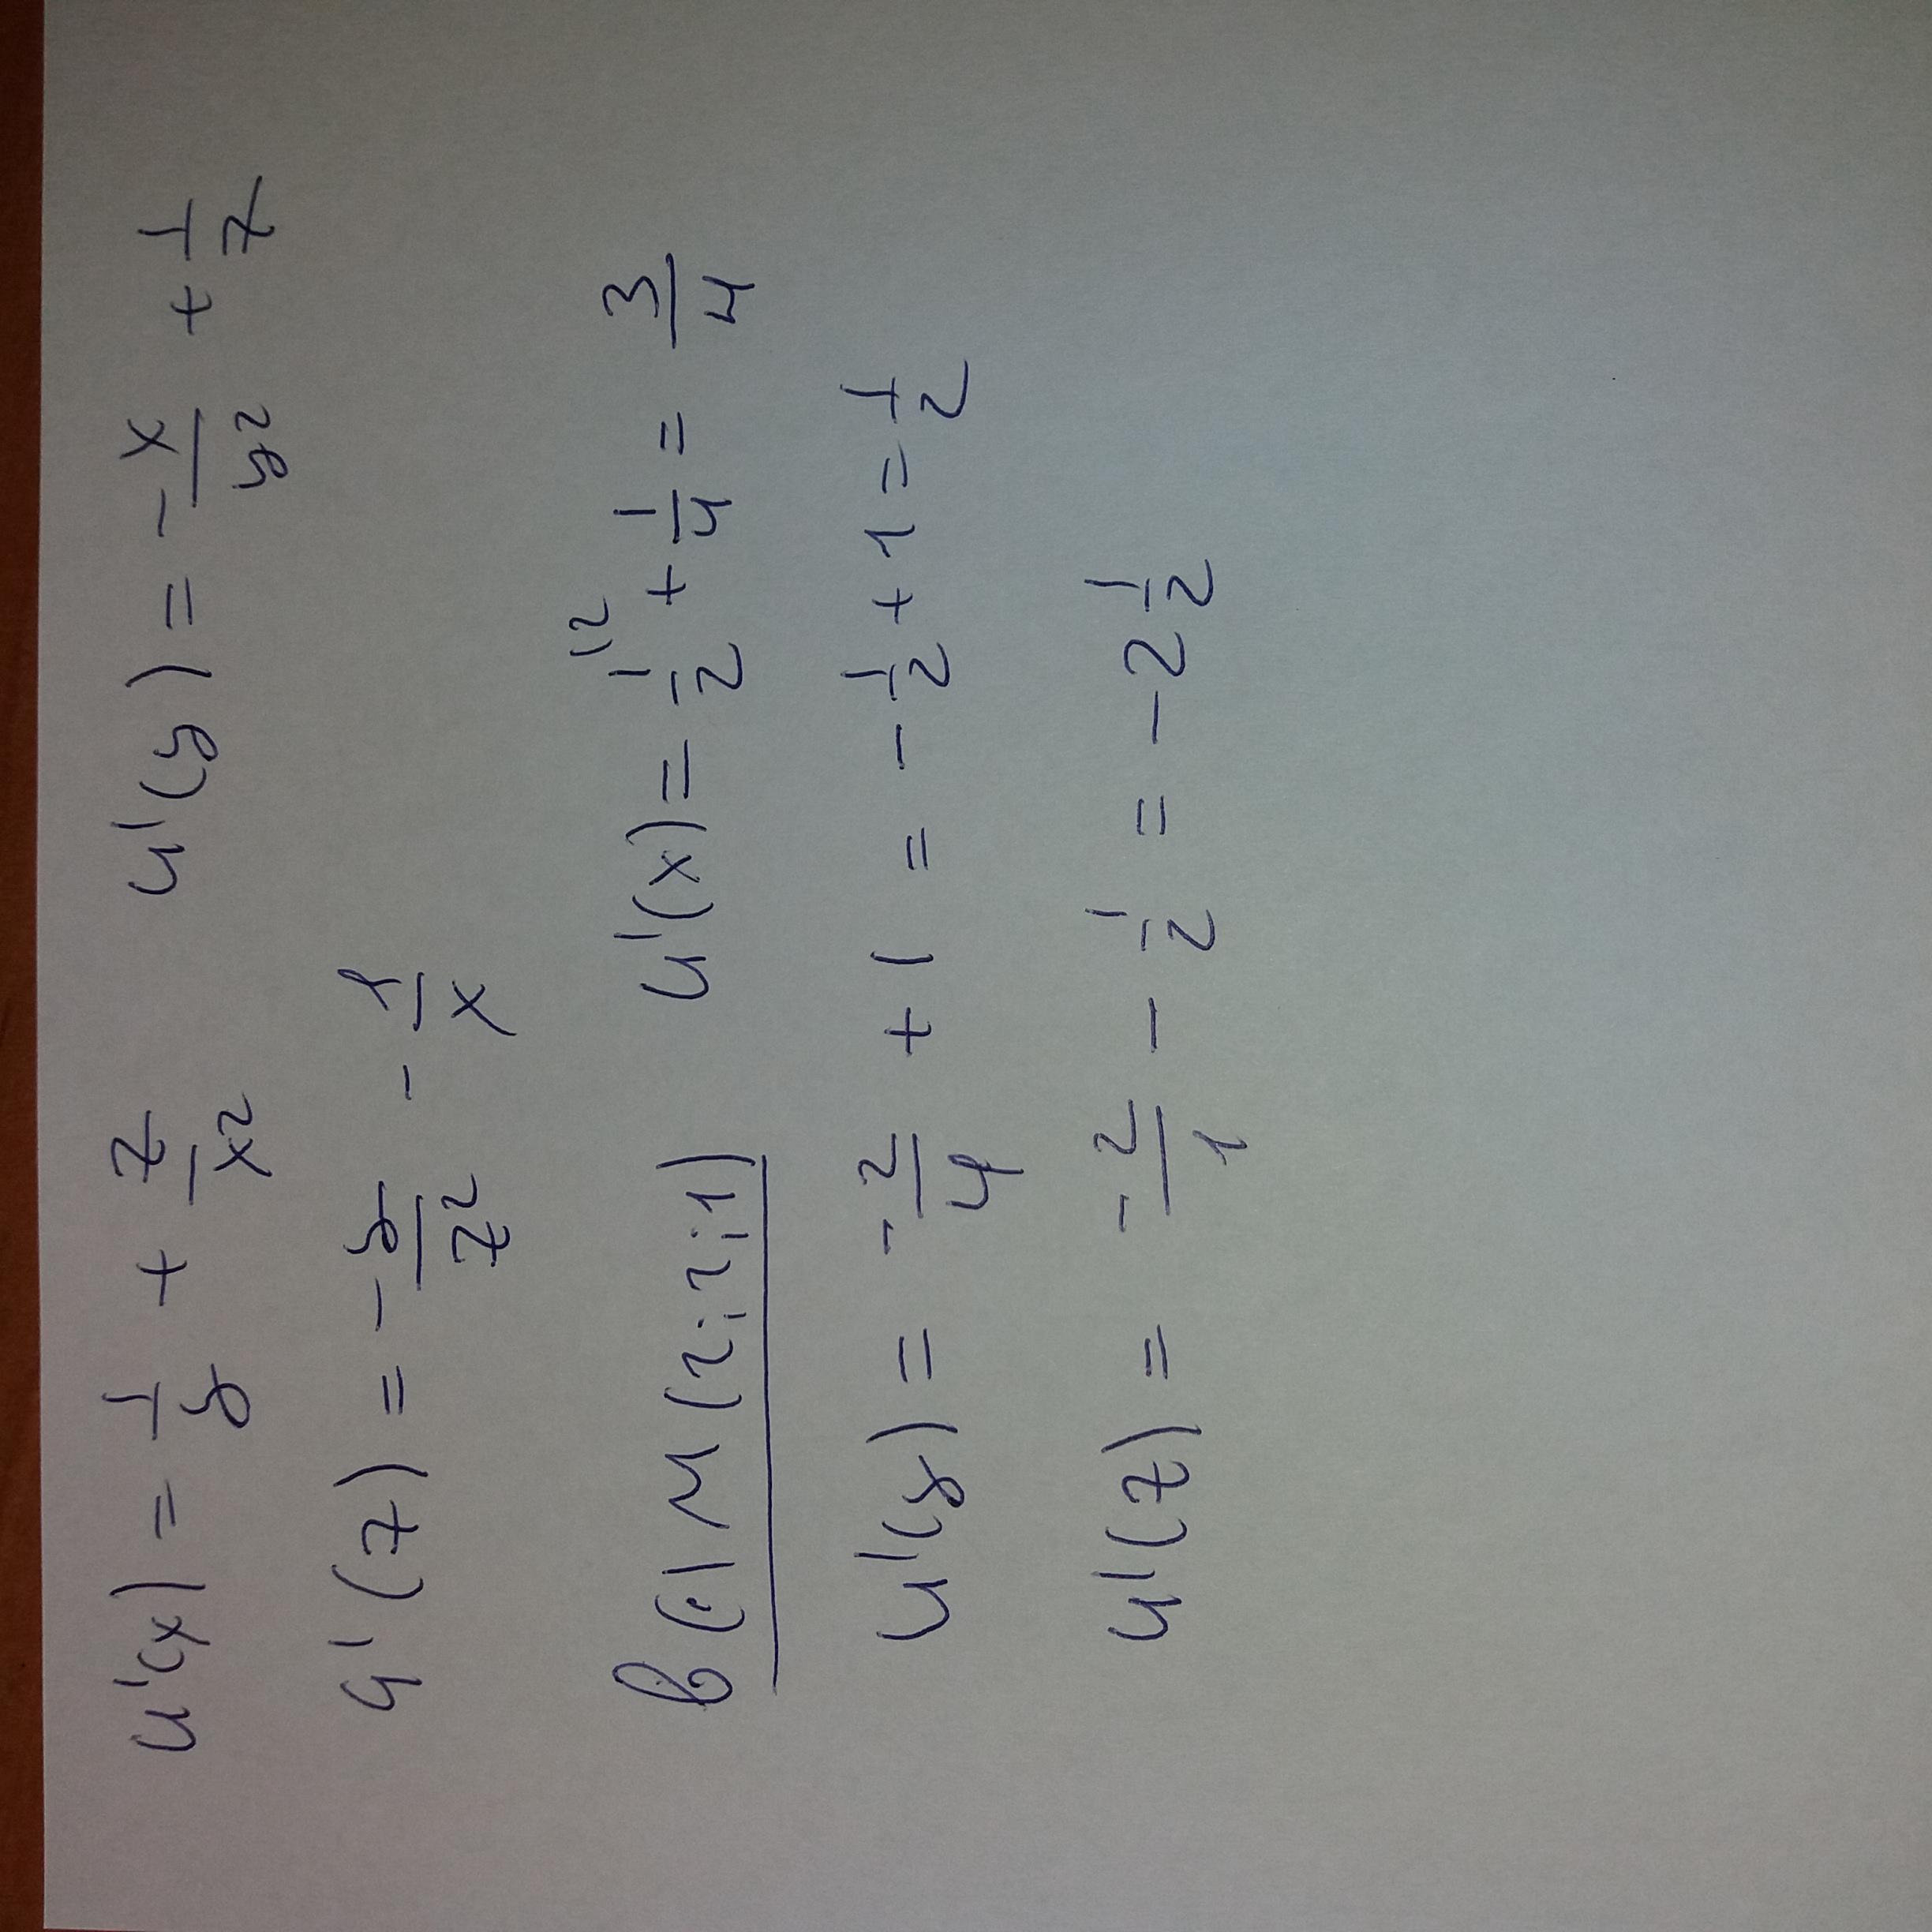 u'(x) = 1/y + z/x² u'(y) = -x/y² + 1/z
u'(z) = -y/z² - 1/x
в(.) M (2;2;1) u'(x) = 1/2 ^{\2} + 1/4 = 3/4
u'(y) = -2/4 + 1 = -1/2 + 1 = 1/2
u'(z) = -2/1 - 1/2 = -2 1/2